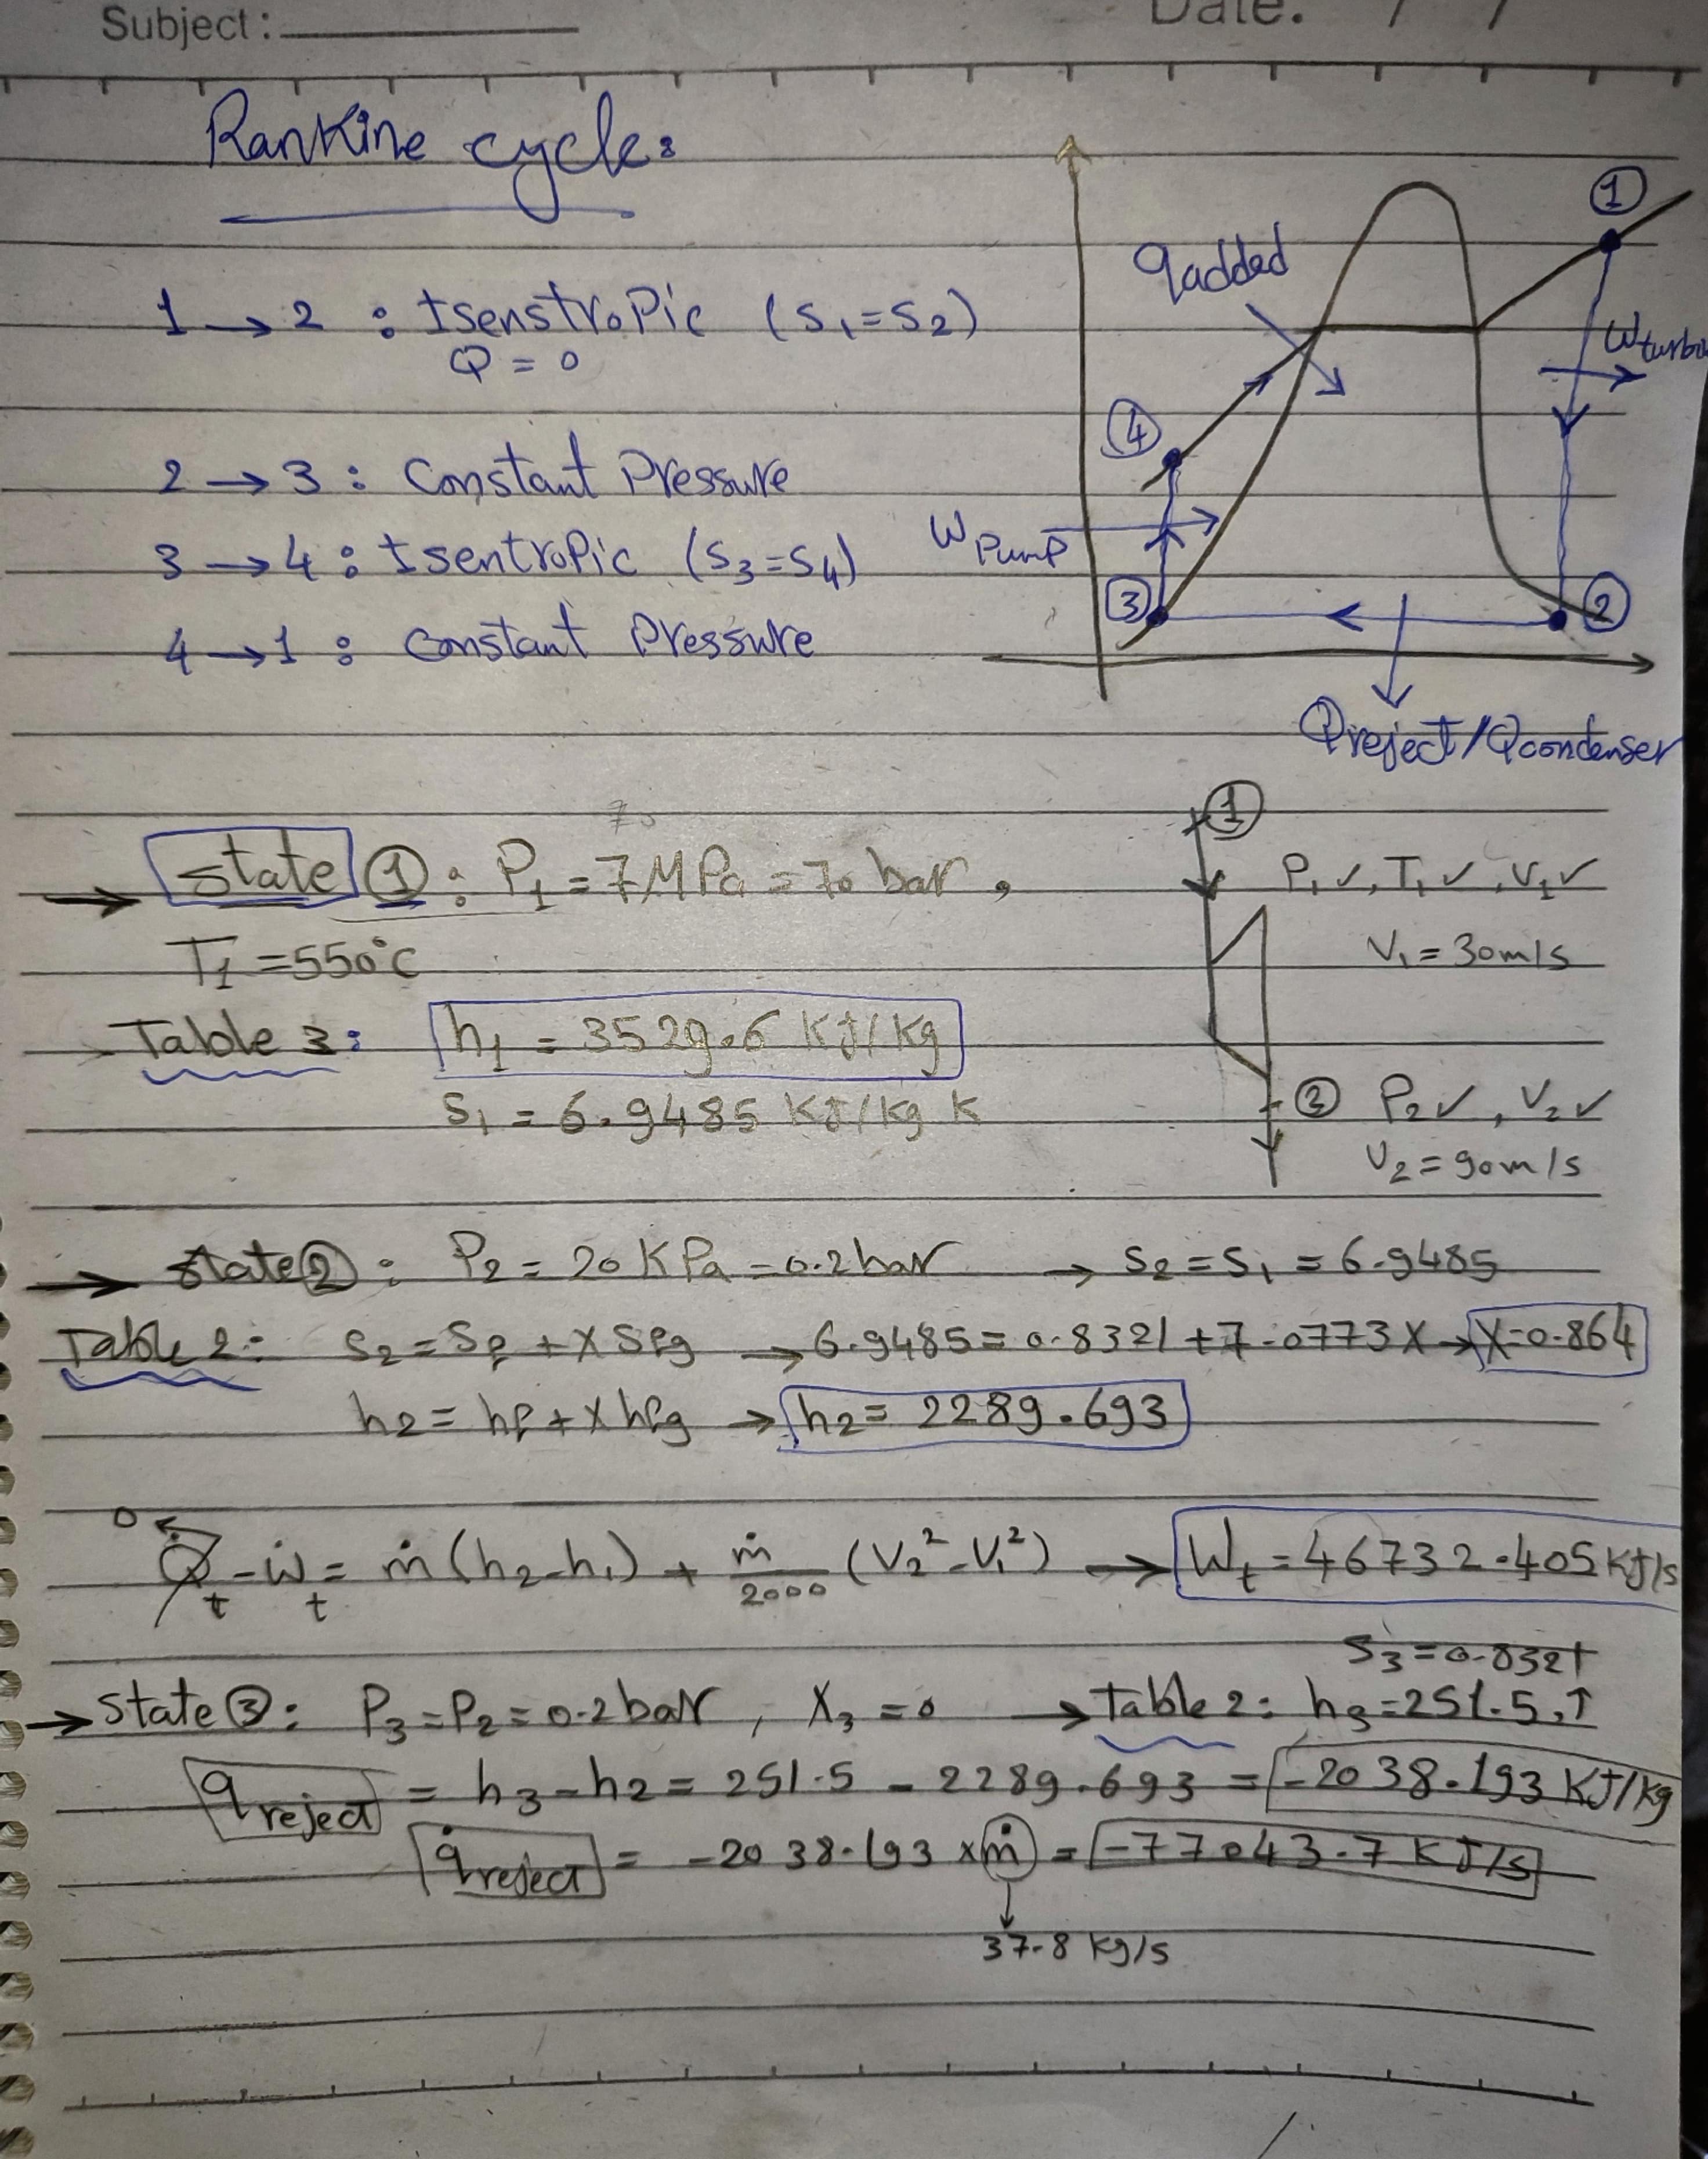 Subject:
Date: / /
Rankine cycle:
1 → 2 : Isenstropic (s₁=s₂)
Q = 0
2 → 3 : Constant Pressure
3 → 4 : Isentropic (s₃=s₄)
4 → 1 : Constant Pressure
①
qadded
Wturbin
④
WPump
③
②
Qreject/Qcondenser
→ state ① : P₁ = 7MPa = 70 bar ,
T₁ = 550°C
Table 3: h₁ = 3529.6 KJ/Kg
S₁ = 6.9485 KJ/Kg K
①
P₁✓, T₁✓, V₁✓
V₁ = 30m/s
② P₂✓, V₂✓
V₂ = 90m/s
→ state② : P₂ = 20 KPa = 0.2bar → S₂ = S₁ = 6.9485
Table 2: S₂ = Sf + X Sfg → 6.9485 = 0.8321 + 7.0773X → X=0.864
h₂ = hf + X hfg → h₂ = 2289.693
0
Q̇t - Ẇt = ṁ(h₂-h₁) + ṁ/2000 (V₂²-V₁²) → Wt = 46732.405 KJ/s
S₃ = 0.8321
→ state③ : P₃ = P₂ = 0.2bar , X₃ = 0 → Table 2: h₃ = 251.5,↑
qreject = h₃ - h₂ = 251.5 - 2289.693 = -2038.193 KJ/Kg
q̇reject = -2038.193 × ṁ = -77043.7 KJ/s
37.8 Kg/s